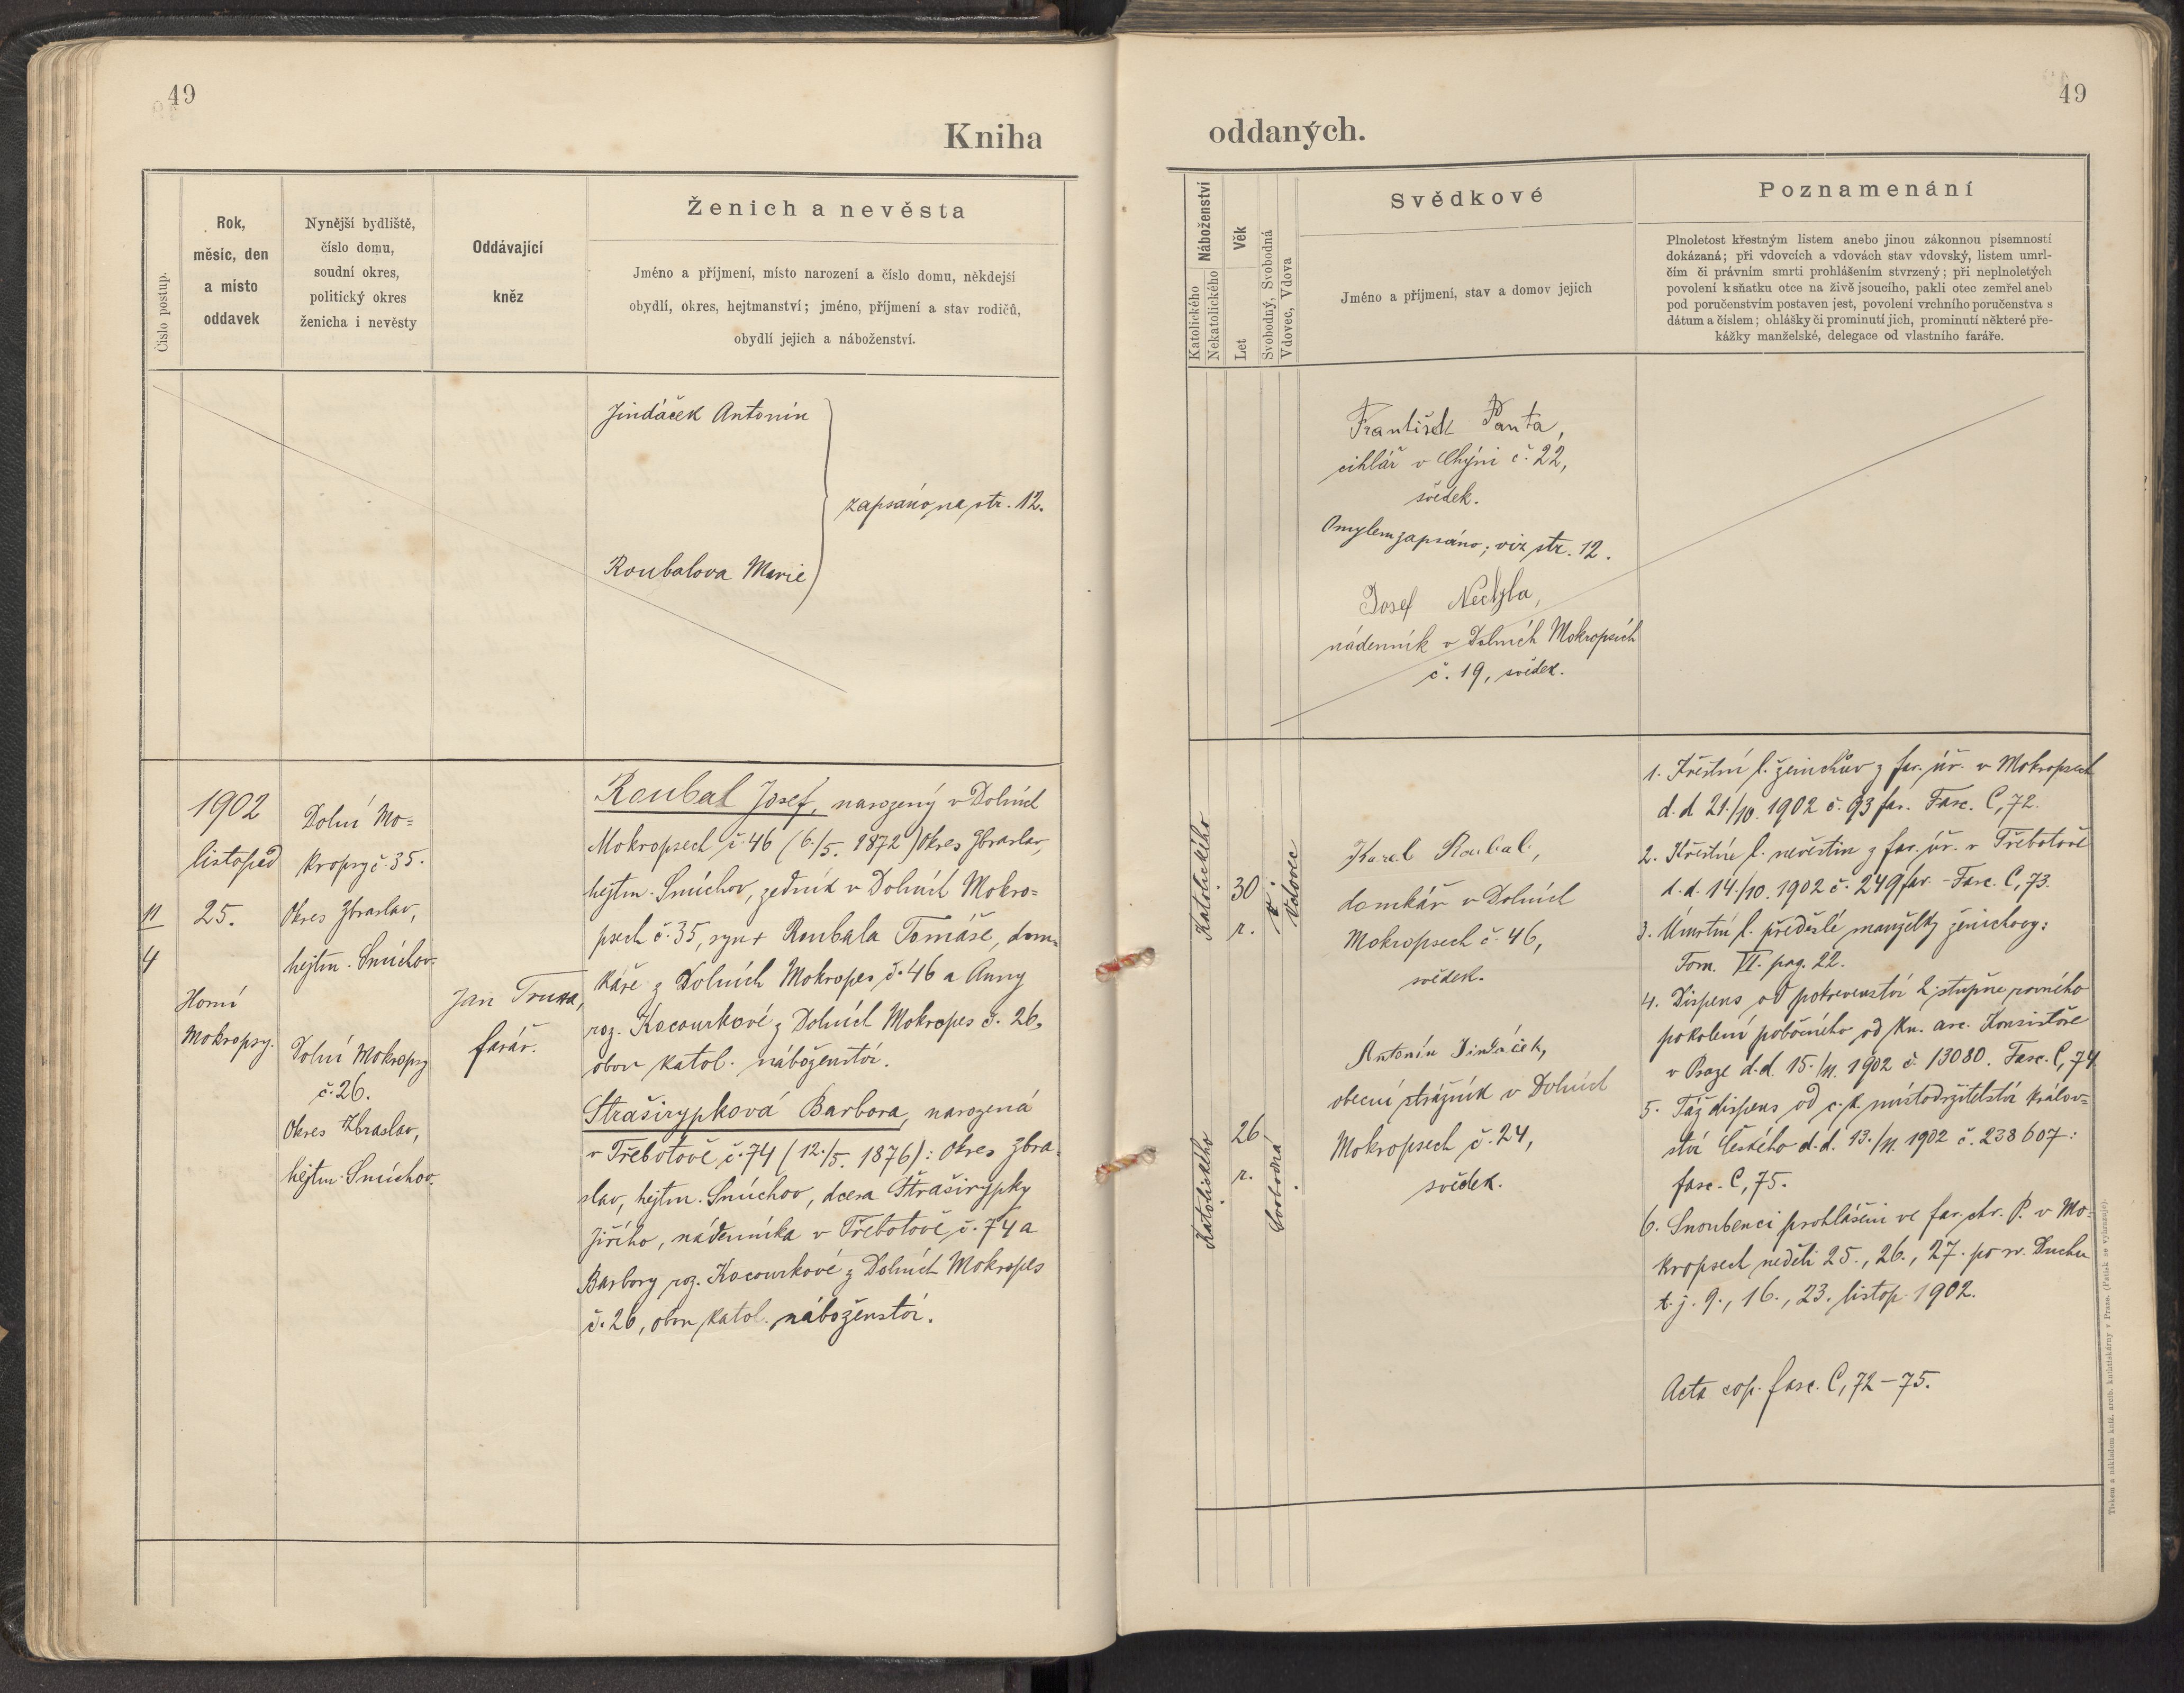 49
Kniha
Číslo postup.
Rok,
měsíc, den
a místo
oddavek
Nynější bydliště,
číslo domu,
soudní okres,
politický okres
ženicha i nevěsty
Oddávající
kněz
Ženich a nevěsta
Jméno a příjmení, místo narození a číslo domu, někdejší
obydlí, okres, hejtmanství; jméno, příjmení a stav rodičů,
obydlí jejich a náboženství.
Jindáček Antonín
zapsáno na str. 12.
Roubalova Marie
11
4
1902
listopad
25.
Horní
Mokropsy.
Dolní Mo=
kropsy č. 35.
Okres Zbraslav,
hejtm. Smíchov.
Dolní Mokropsy
č. 26.
Okres Zbraslav,
hejtm. Smíchov.
Jan Trusa,
farář.
Roubal Josef, narozený v Dolních
Mokropsech č. 46 (6./5. 1872) Okres Zbraslav,
hejtm. Smíchov, zedník v Dolních Mokro=
psech č. 35, syn + Roubala Tomáše, dom=
káře z Dolních Mokropes č. 46 a Anny
roz. Kocourkové z Dolních Mokropes č. 26,
obou katol. náboženství.
Straširypková Barbora, narozená
v Třebotově č. 74 (12./5. 1876): Okres Zbra=
slav, hejtm. Smíchov, dcera Straširypky
Jiřího, nádenníka v Třebotově č. 74 a
Barbory roz. Kocourkové z Dolních Mokropes
č. 26, obou katol. náboženství.
49
oddaných.
Náboženství
Katolického
Nekatolického
Věk
Let
Svobodný, Svobodná
Vdovec, Vdova
Svědkové
Jméno a příjmení, stav a domov jejich
Poznamenání
Plnoletost křestným listem anebo jinou zákonnou písemností
dokázaná; při vdovcích a vdovách stav vdovský, listem umrl-
čím či právním smrti prohlášením stvrzený; při neplnoletých
povolení k sňatku otce na živě jsoucího, pakli otec zemřel aneb
pod poručenstvím postaven jest, povolení vrchního poručenstva s
dátum a číslem; ohlášky či prominutí jich, prominutí některé pře-
kážky manželské, delegace od vlastního faráře.
František Panta,
cihlář v Chýni č. 22,
svědek.
Omylem zapsáno; viz str. 12.
Josef
nádenník v Dolních Mokropsích
č. 19, svědek.
Katolického
30
r.
Vdovec
Karel Roubal,
domkář v Dolních
Mokropsech č. 46,
svědek.
Katolického
26
r.
Svobodná
Antonín Jindáček,
obecní strážník v Dolních
Mokropsech č. 24,
svědek.
1. Křestní l. ženichův z far. úř. v Mokropsech
d. d. 21./10. 1902 č. 93 far. Fasc. C, 72.
2. Křestní l. nevěstin z far. úř. v Třebotově
d. d. 14./10. 1902 č. 249 far. - Fasc. C, 73.
3. Úmrtní l. předešlé manželky ženichovy:
Tom. VI. pag. 22.
4. Dispens od pokrevenství 2. stupně rovného
pokolení pobočného od kn. arc. Konsistoře
v Praze d. d. 15./11. 1902 č. 13080. Fasc. C, 74
5. Táž dispens od c. k. místodržitelství králov=
ství Českého d. d. 13./11. 1902 č. 238607:
fasc. C, 75.
6. Snoubenci prohlášeni ve far. chr. P. v Mo=
kropsech neděli 25., 26., 27. po sv. Duchu
t. j. 9., 16., 23. listop. 1902.
Acta cop. fasc. C, 72-75.
Tiskem a nákladem kníž. arcib. knihtiskárny v Praze. (Patisk se vyhrazuje).